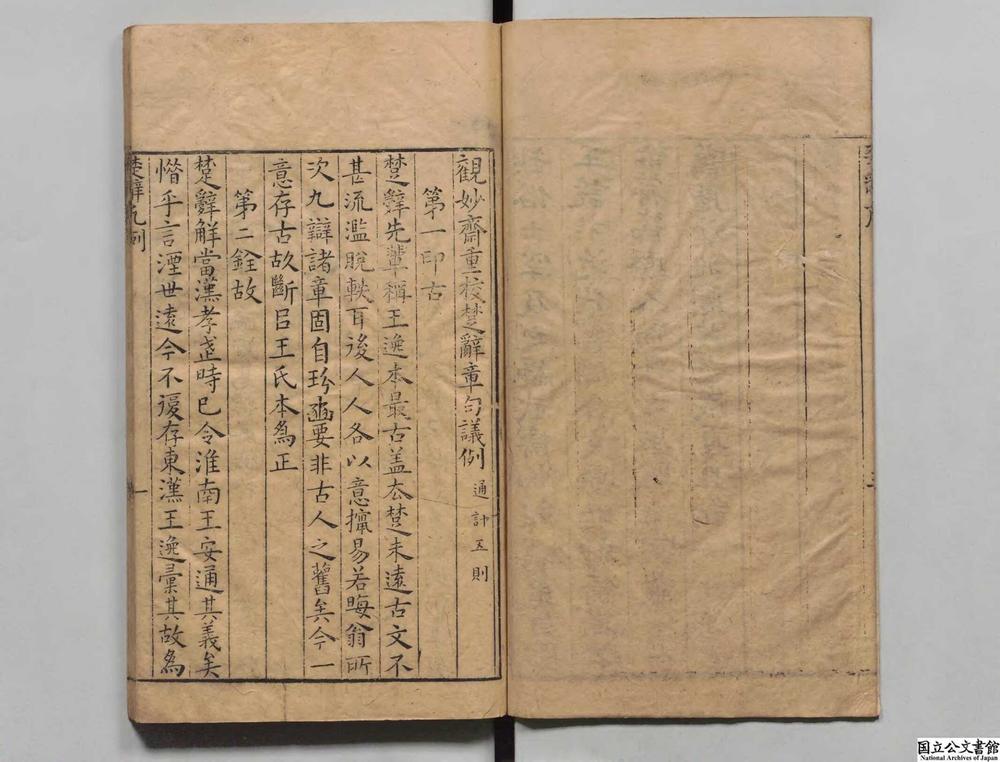 觀妙齋重校楚辭章句議例 通計五則
第一印古
楚辭先軰稱王逸本最古盖去楚未遠古文不
甚流濫脫軼耳後人人各以意攛易若晦翁所
次九辯諸章固自玢豳要非古人之舊矣今一
意存古故斷㠯王氏本為正
第二銓故
楚辭解當漢孝武時巳令淮南王安通其義矣
惜乎言湮世遠今不復存東漢王逸彚其故為
楚辭凡例
一
国立公文書館
National Archives of Japan